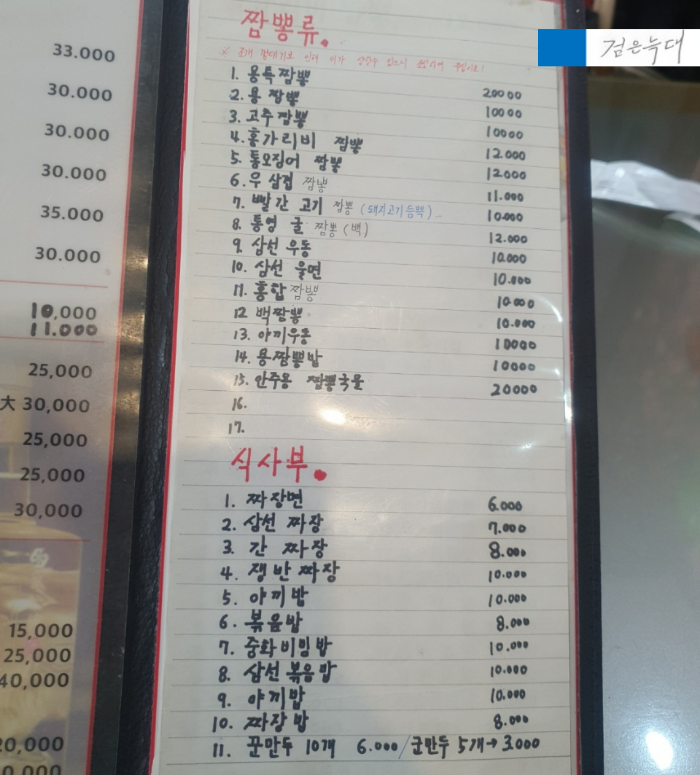 33.000
30.000
30.000
30.000
35.000
30.000
10,000
11.000
25,000
大 30,000
25,000
25,000
30,000
15,000
25,000
40,000
20,000
검은늑대
짬뽕류.
1. 용특짬뽕 20000
2. 용 짬뽕 10000
3. 고추짬뽕 10000
4. 홍가리비 짬뽕 12.000
5. 통오징어 짬뽕 12000
6. 우삼겹 짬뽕 11.000
7. 빨간 고기 짬뽕 (돼지고기등뼉) 10.000
8. 통영 굴 짬뽕 (백) 12.000
9. 삼선 우동 10.000
10. 삼선 울면 10.000
11. 홍합 짬뽕 10.000
12 백짬뽕 10.000
13. 야끼우동 10000
14. 용짬뽕밥 10000
15. 안주용 짬뽕국물 20000
16.
17.
식사부.
1. 짜장면 6.000
2. 삼선 짜장 7.000
3. 간 짜장 8.000
4. 쟁반짜장 10.000
5. 야끼밥 10.000
6. 볶음밥 8.000
7. 중화비빔밥 10.000
8. 삼선볶음밥 10.000
9. 야끼밥 10.000
10. 짜장밥 8.000
11. 군만두 10개 6.000/군만두 5개→3.000